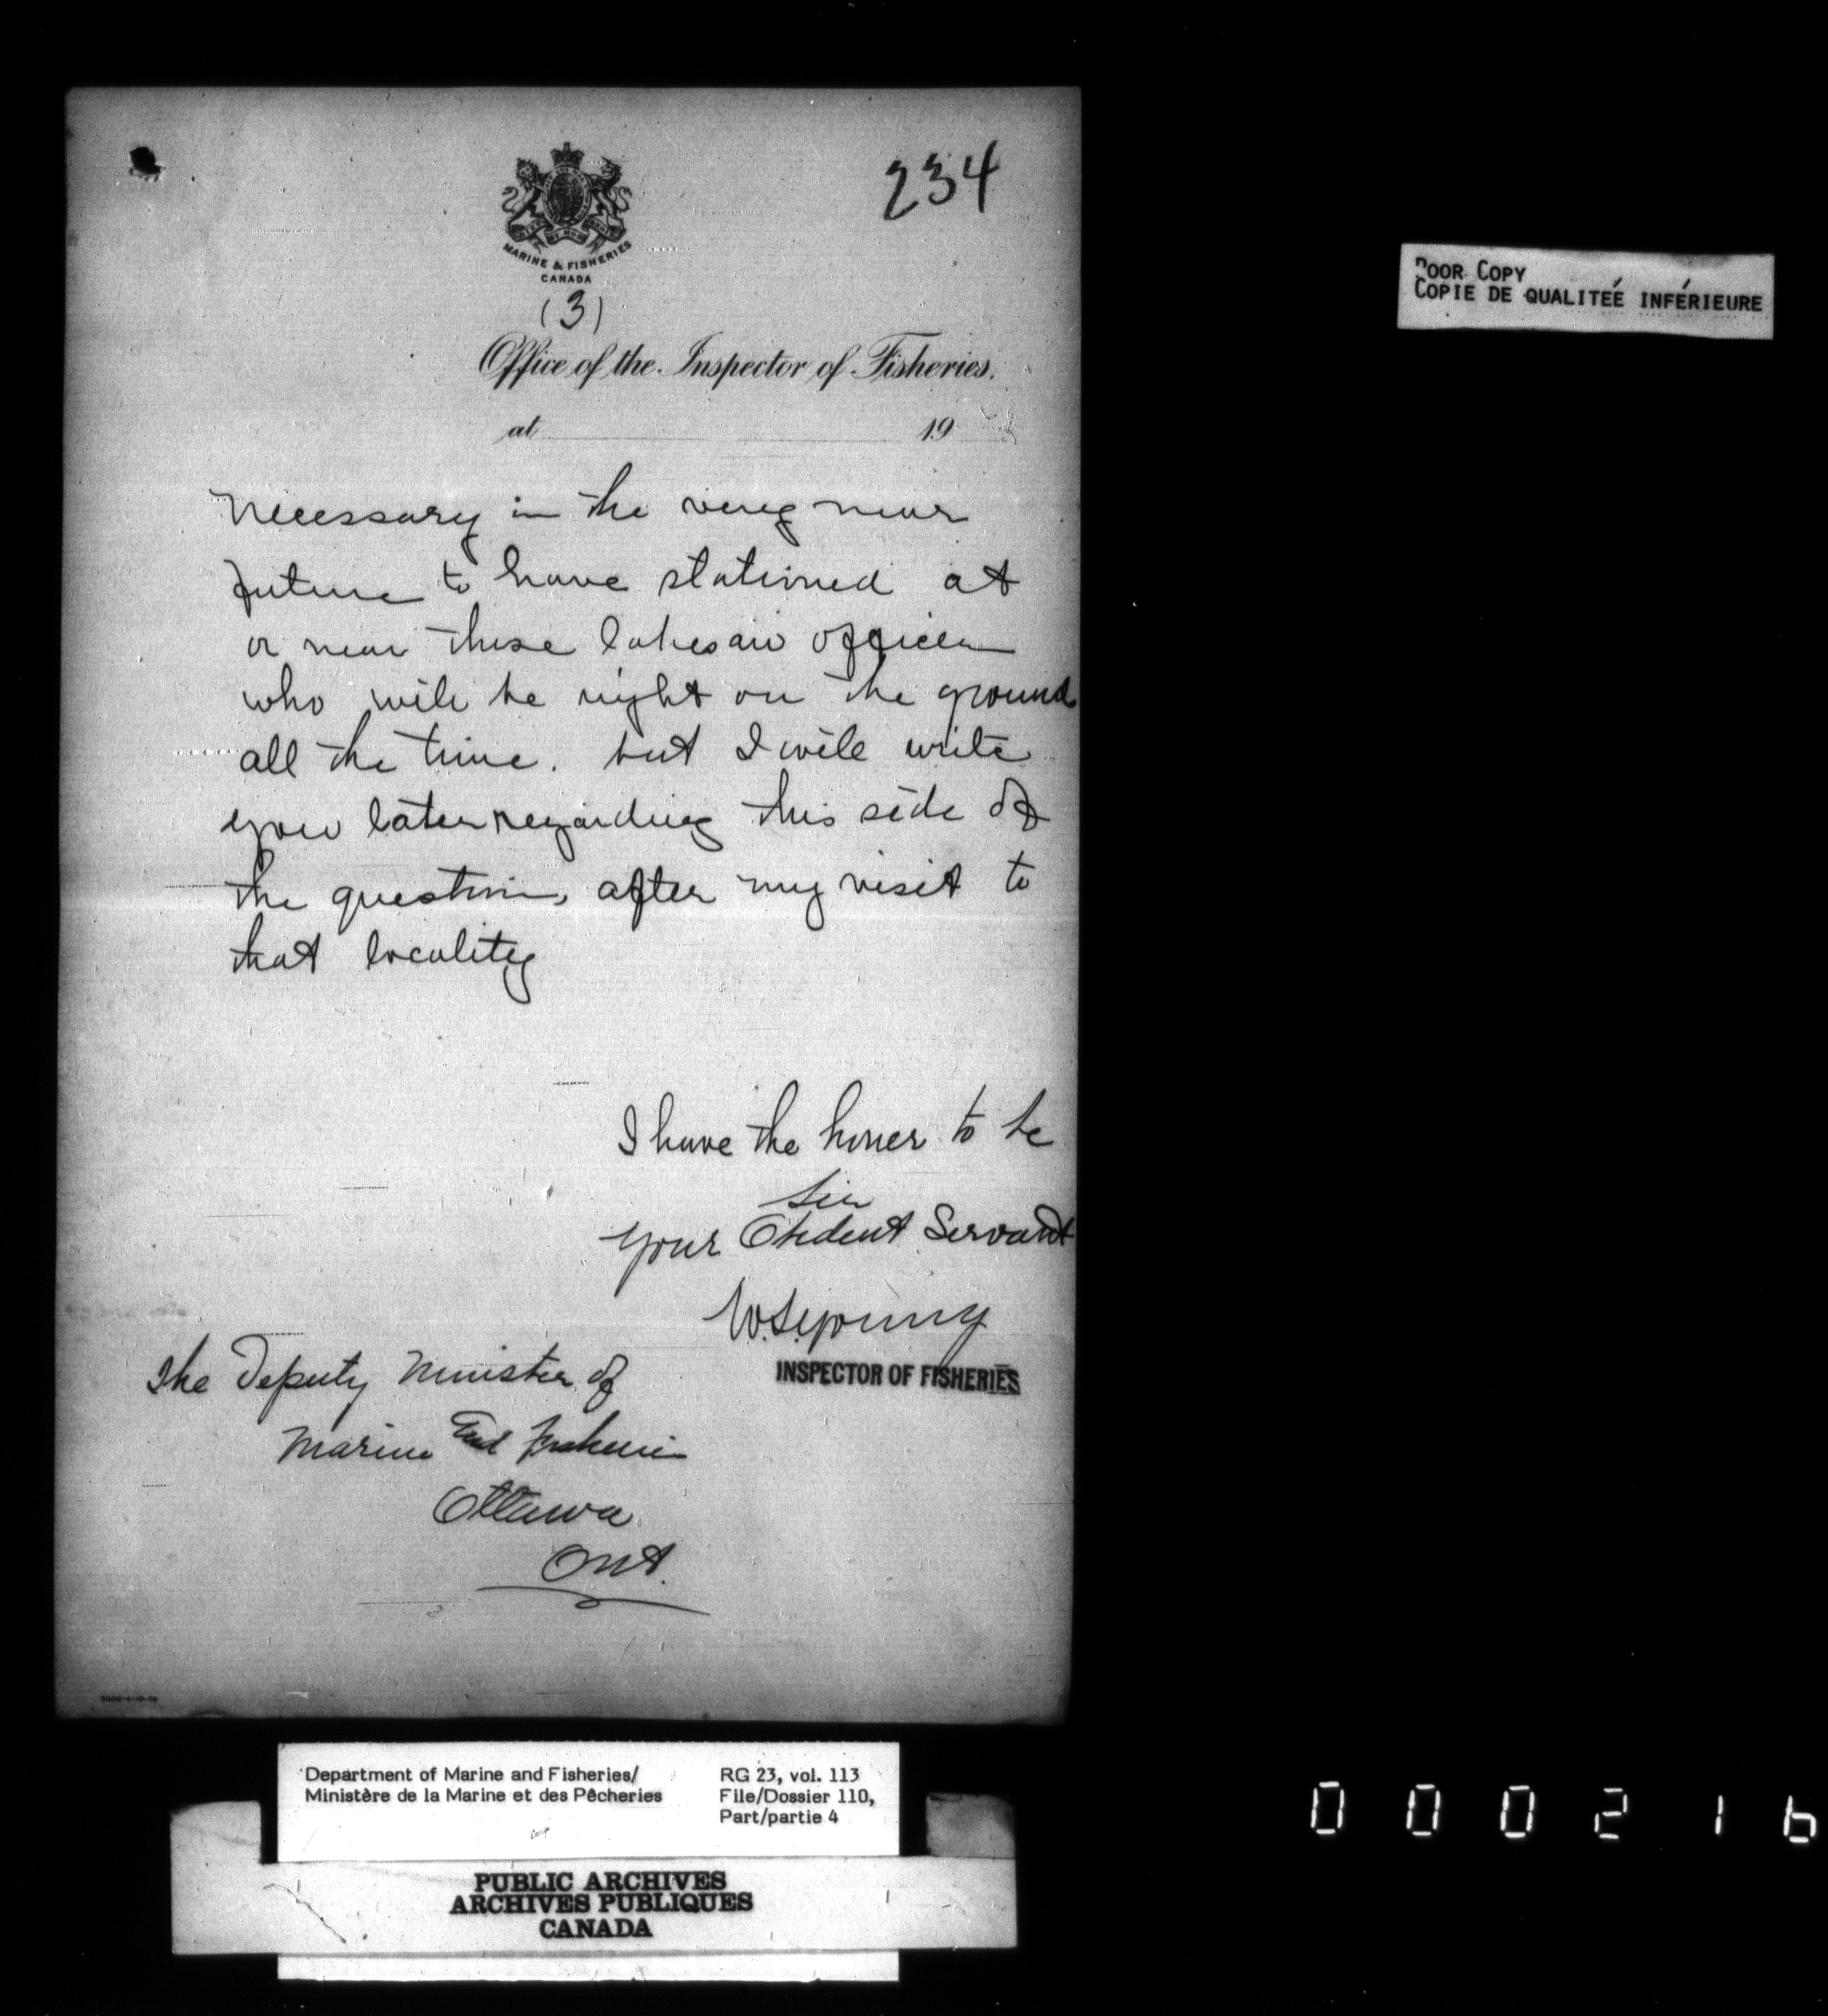 234
MARINE & FISHERIES
CANADA
(3)
Office of the Inspector of Fisheries.
at 19
Necessary in the very near
future to have stationed at
or near these lakes an officer
who will be right on the ground
all the time. but I will write
you later regarding this side of
the question, after my visit to
that locality
I have the honer to be
Sir
your Obedent Servant
W.S. young
INSPECTOR OF FISHERIES
The Deputy Minister of
Marine and Fisheries
Ottawa
Ont.
POOR COPY
COPIE DE QUALITEÉ INFÉRIEURE
Department of Marine and Fisheries/
Ministère de la Marine et des Pêcheries
RG 23, vol. 113
File/Dossier 110,
Part/partie 4
PUBLIC ARCHIVES
ARCHIVES PUBLIQUES
CANADA
000216